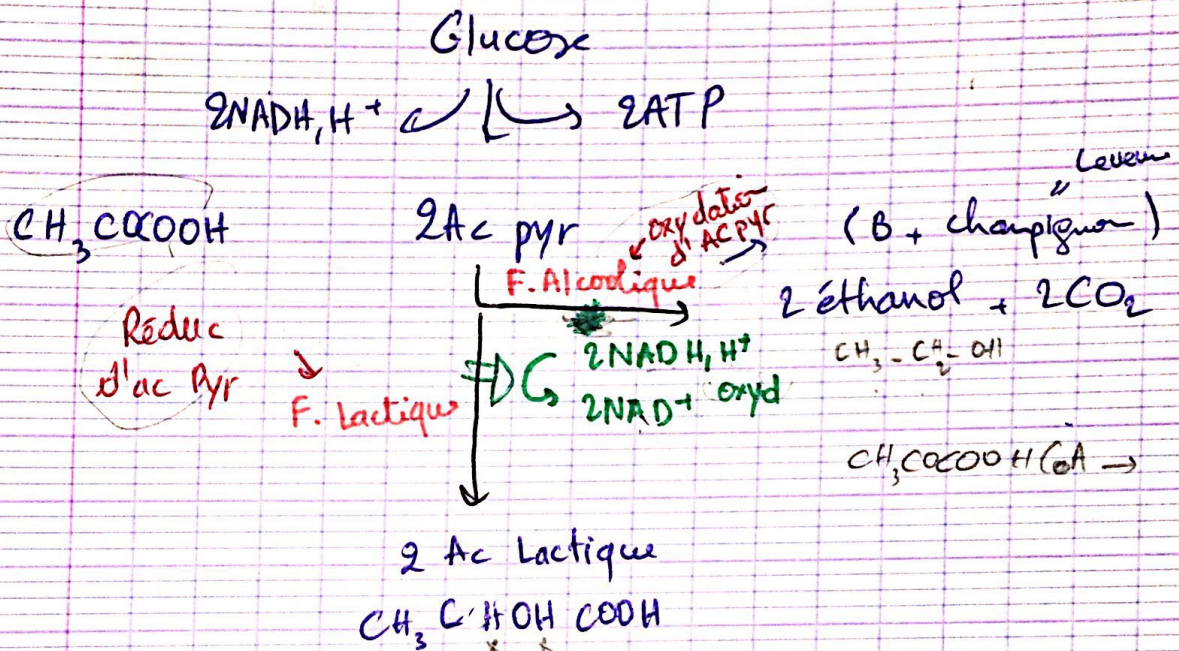 Glucose
2NADH, H+ 2ATP
Levure
CH3COCOOH 2Ac pyr oxydation d'ACPyr (B + champignon)
F. Alcoolique 2 éthanol + 2CO2
Réduc 2NADH, H+ CH3 - CH2 - OH
d'ac Pyr F. Lactique 2NAD+ oxyd
CH3COCOOH CoA →
2 Ac Lactique
CH3 CHOH COOH